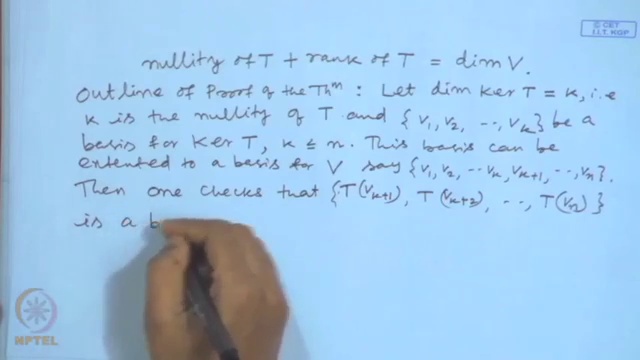 © CET
I.I.T. KGP
nullity of T + rank of T = dim V.
Outline of Proof of the Thm : Let dim Ker T = k, i.e
k is the nullity of T and {v1, v2, ..., vk} be a
basis for Ker T, k ≤ n. This basis can be
extented to a basis for V say {v1, v2, ... vk, vk+1, ..., vn}.
Then one checks that {T(vk+1), T(vk+2), ..., T(vn)}
is a b
NPTEL